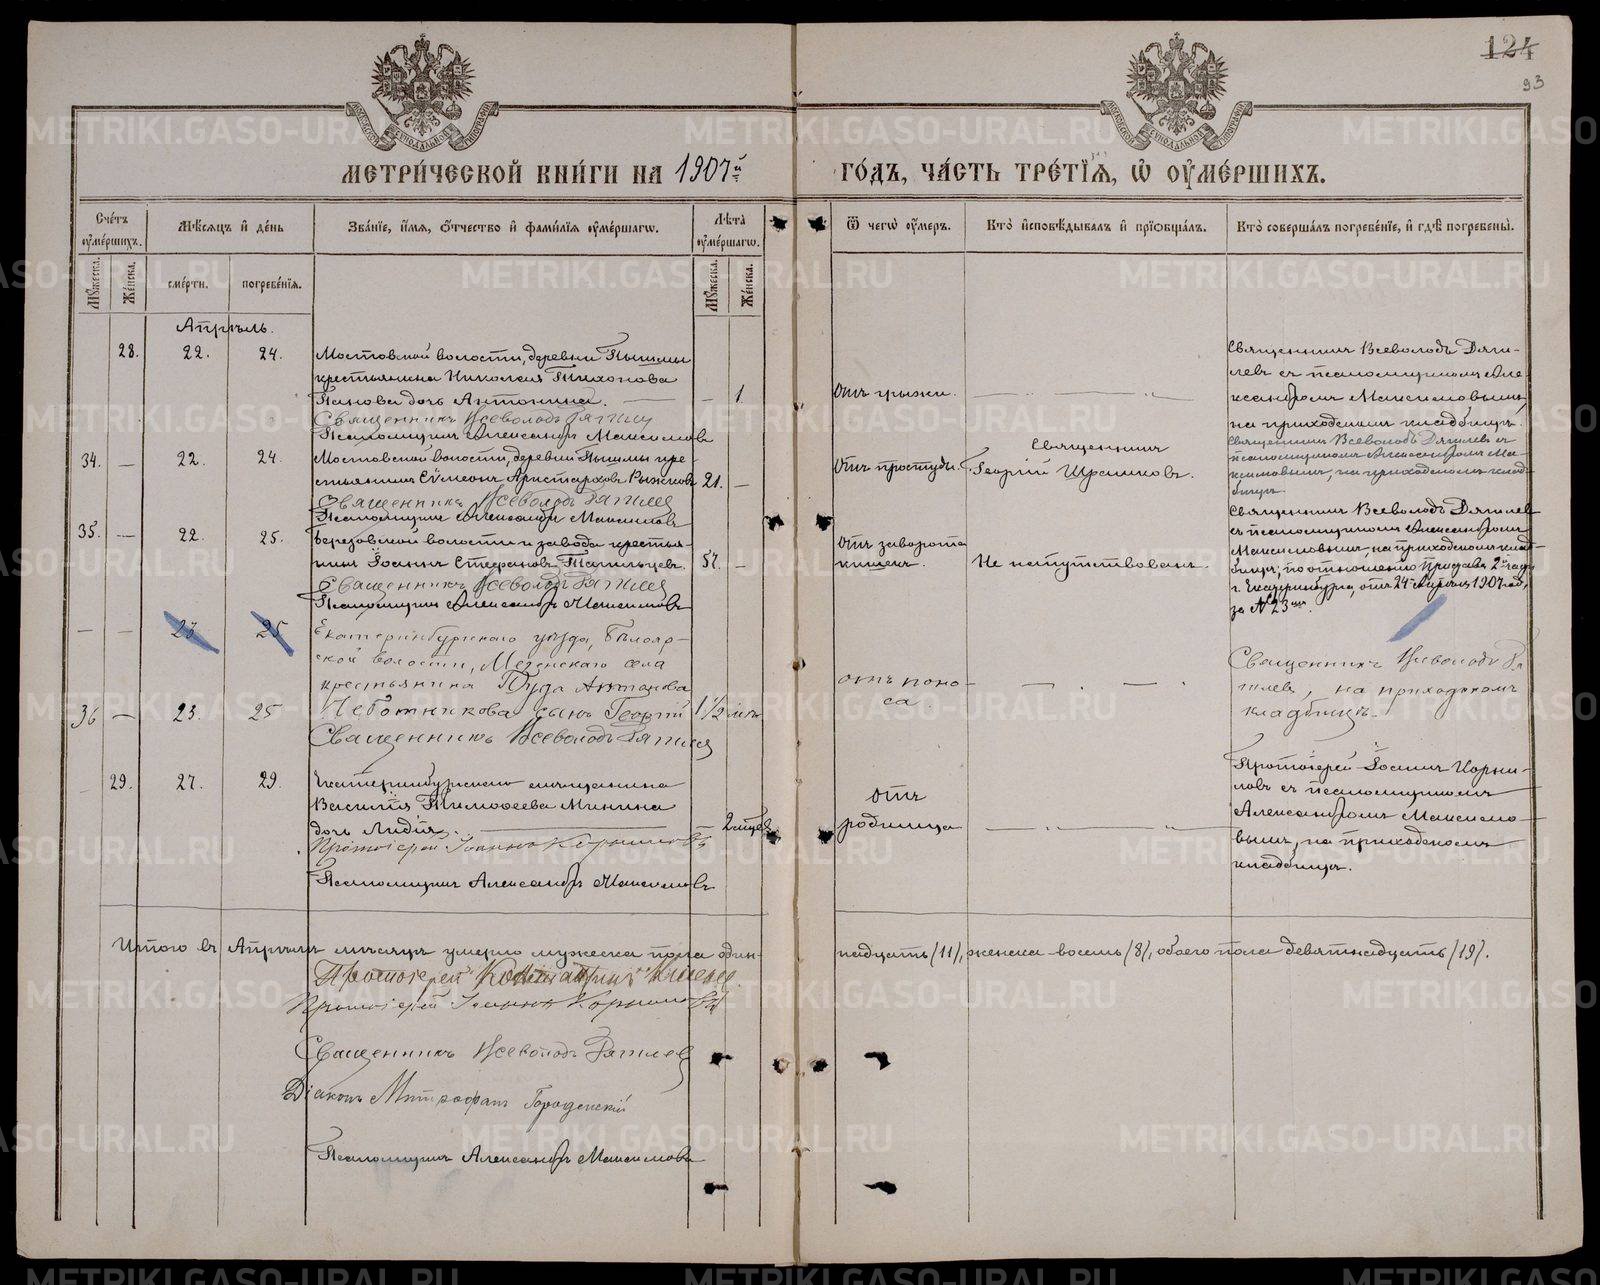 124
93
МЕТРИ́ЧЕСКОЙ КНИ́ГИ НА 1907й ГО́ДЪ, ЧА́СТЬ ТРЕ́ТІѦ, Ѡ ОУ҆МЕ́РШИХЪ.
Сче́тъ оу҆ме́ршихъ.
Мꙋ́жеска.
Же́нска.
Мѣ́сяцъ и҆ де́нь
сме́рти.
погребе́нїя.
Зва́нїе, и҆́мя, ѻ҆́тчество и҆ фами́лїя оу҆ме́ршагѡ.
Лѣ́та оу҆ме́ршагѡ.
Мꙋ́жеска.
Же́нска.
Ѿ чегѡ̀ оу҆́меръ.
Кто̀ и҆сповѣ́дывалъ и҆ прїѡбща́лъ.
Кто̀ соверша́лъ погребе́нїе, и҆ гдѣ̀ погребены̀.
Апрѣль.
28. 22. 24.
Мостовской волости, деревни Пышмы
крестьянина Николая Тихонова
Панова дочь Антонина. — 1
Священникъ Всеволодъ Дягилев
Псаломщикъ Александръ Максимовъ
Отъ грыжи.
Священникъ Всеволодъ Дяги-
левъ съ псаломщикомъ Але-
ксандромъ Максимовымъ,
на приходскомъ кладбищѣ.
34. — 22. 24.
Мостовской волости, деревни Пышмы кре-
стьянинъ Сѵмеонъ Аристарховъ Рыжковъ 21. —
Священникъ Всеволодъ Дягилев
Псаломщикъ Александръ Максимовъ
Отъ простуды.
Священникъ
Георгій Ирашковъ.
Священникъ Всеволодъ Дягилевъ съ
псаломщикомъ Александромъ Ма-
ксимовымъ, на приходскомъ клад-
бищѣ.
35. — 22. 25.
Березовской волости и завода кресть-
янинъ Іоаннъ Стефановъ Тагильцевъ. 57. —
Священникъ Всеволодъ Дягилев
Псаломщикъ Александръ Максимовъ
Отъ заворота
кишекъ.
Не напутствованъ.
Священникъ Всеволодъ Дягилевъ
съ псаломщикомъ Александромъ
Максимовымъ, на приходскомъ клад-
бищѣ, по отношенію Пристава 2й части
г. Екатеринбурга, отъ 24 Апрѣля 1907 года,
за № 23
— — 23 25
Екатеринбургскаго уѣзда, Бѣлояр-
ской волости, Мезенскаго села
крестьянина Туда Антонова
36 — 23. 25
Чеботникова сынъ Георгій 1 1/2 лѣтъ
Священникъ Всеволодъ Дягилев
отъ поно-
са
Священникъ Всеволодъ Дя
гилевъ, на приходскомъ
кладбищѣ.
29. 27. 29.
Екатеринбургскаго мѣщанина
Василія Тимофеева Минина
дочь Лидія. — 2 мѣсяц
Протоіерей Іоаннъ Корниловъ
Псаломщикъ Александръ Максимовъ
Отъ
родимца
Протоіерей Іоаннъ Корни-
ловъ съ псаломщикомъ
Александромъ Максимо-
вымъ, на приходскомъ
кладбищѣ.
Итого въ Апрѣлѣ мѣсяцѣ умерло мужеска пола один-
надцать /11/, женска восемь /8/, обоего пола девятнадцать /19/.
Протоіерей
Протоіерей Іоаннъ Корниловъ
Священникъ Всеволодъ Дягилев
Діаконъ Митрофанъ Городенскій
Псаломщикъ Александръ Максимовъ